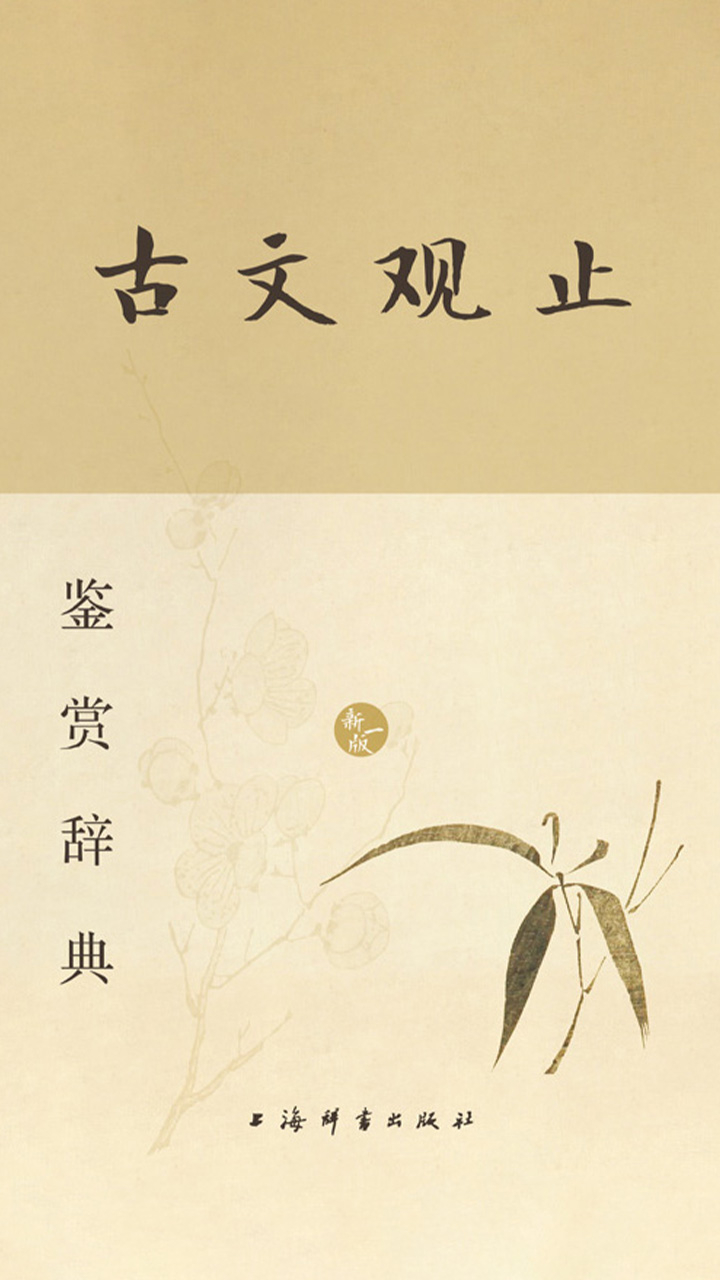 古文观止
鉴赏辞典
新一版
上海辞书出版社